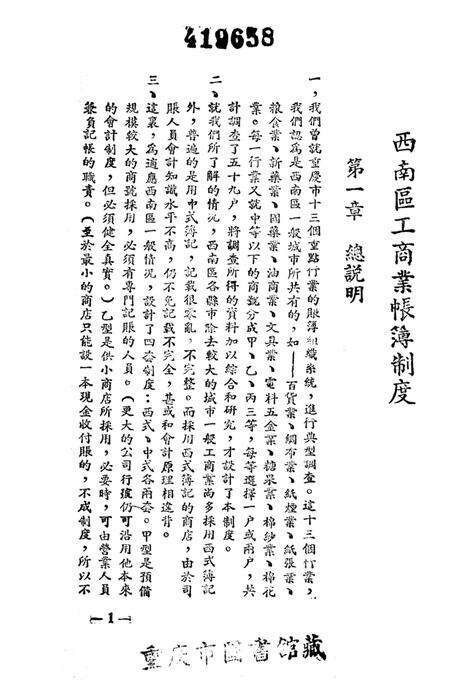 419658
西南區工商業帳簿制度
第一章 總說明
一、我們曾就重慶市十三個重點行業的賬簿組織系統，進行典型調查。這十三個行業，
我們認爲是西南區一般城市所共有的，如——百貨業、綢布業、紙煙業、紙張業、
粮食業、新藥業、國藥業、油商業、文具業、電料五金業、糖菓業、棉紗業、棉花
業。每一行業又就中等以下的商號分成甲、乙、丙三等，每等選擇一戶或兩戶，共
計調查了五十九戶，將調查所得的資料加以綜合和研究，才設計了本制度。
二、就我們所了解的情況，西南區各縣市除去較大的城市一般工商業尚多採用西式簿記
外，普遍的是用中式簿記，記載很零亂，不完整。而採用西式簿記的商店，由於司
賬人員會計知識水平不高，仍不免記載不完全，甚或和會計原理相違背。
三、這裏，爲適應西南區一般情況，設計了四套制度：西式、中式各兩套。甲型是預備
規模較大的商號採用，必須有專門記賬的人員。（更大的公司行號仍可沿用他本來
的會計制度，但必須健全真實。）乙型是供小商店所採用，必要時，可由營業人員
兼負記帳的職責。（至於最小的商店只能設一本現金收付賬的，不成制度，所以不
—1—
重庆市圖書館藏